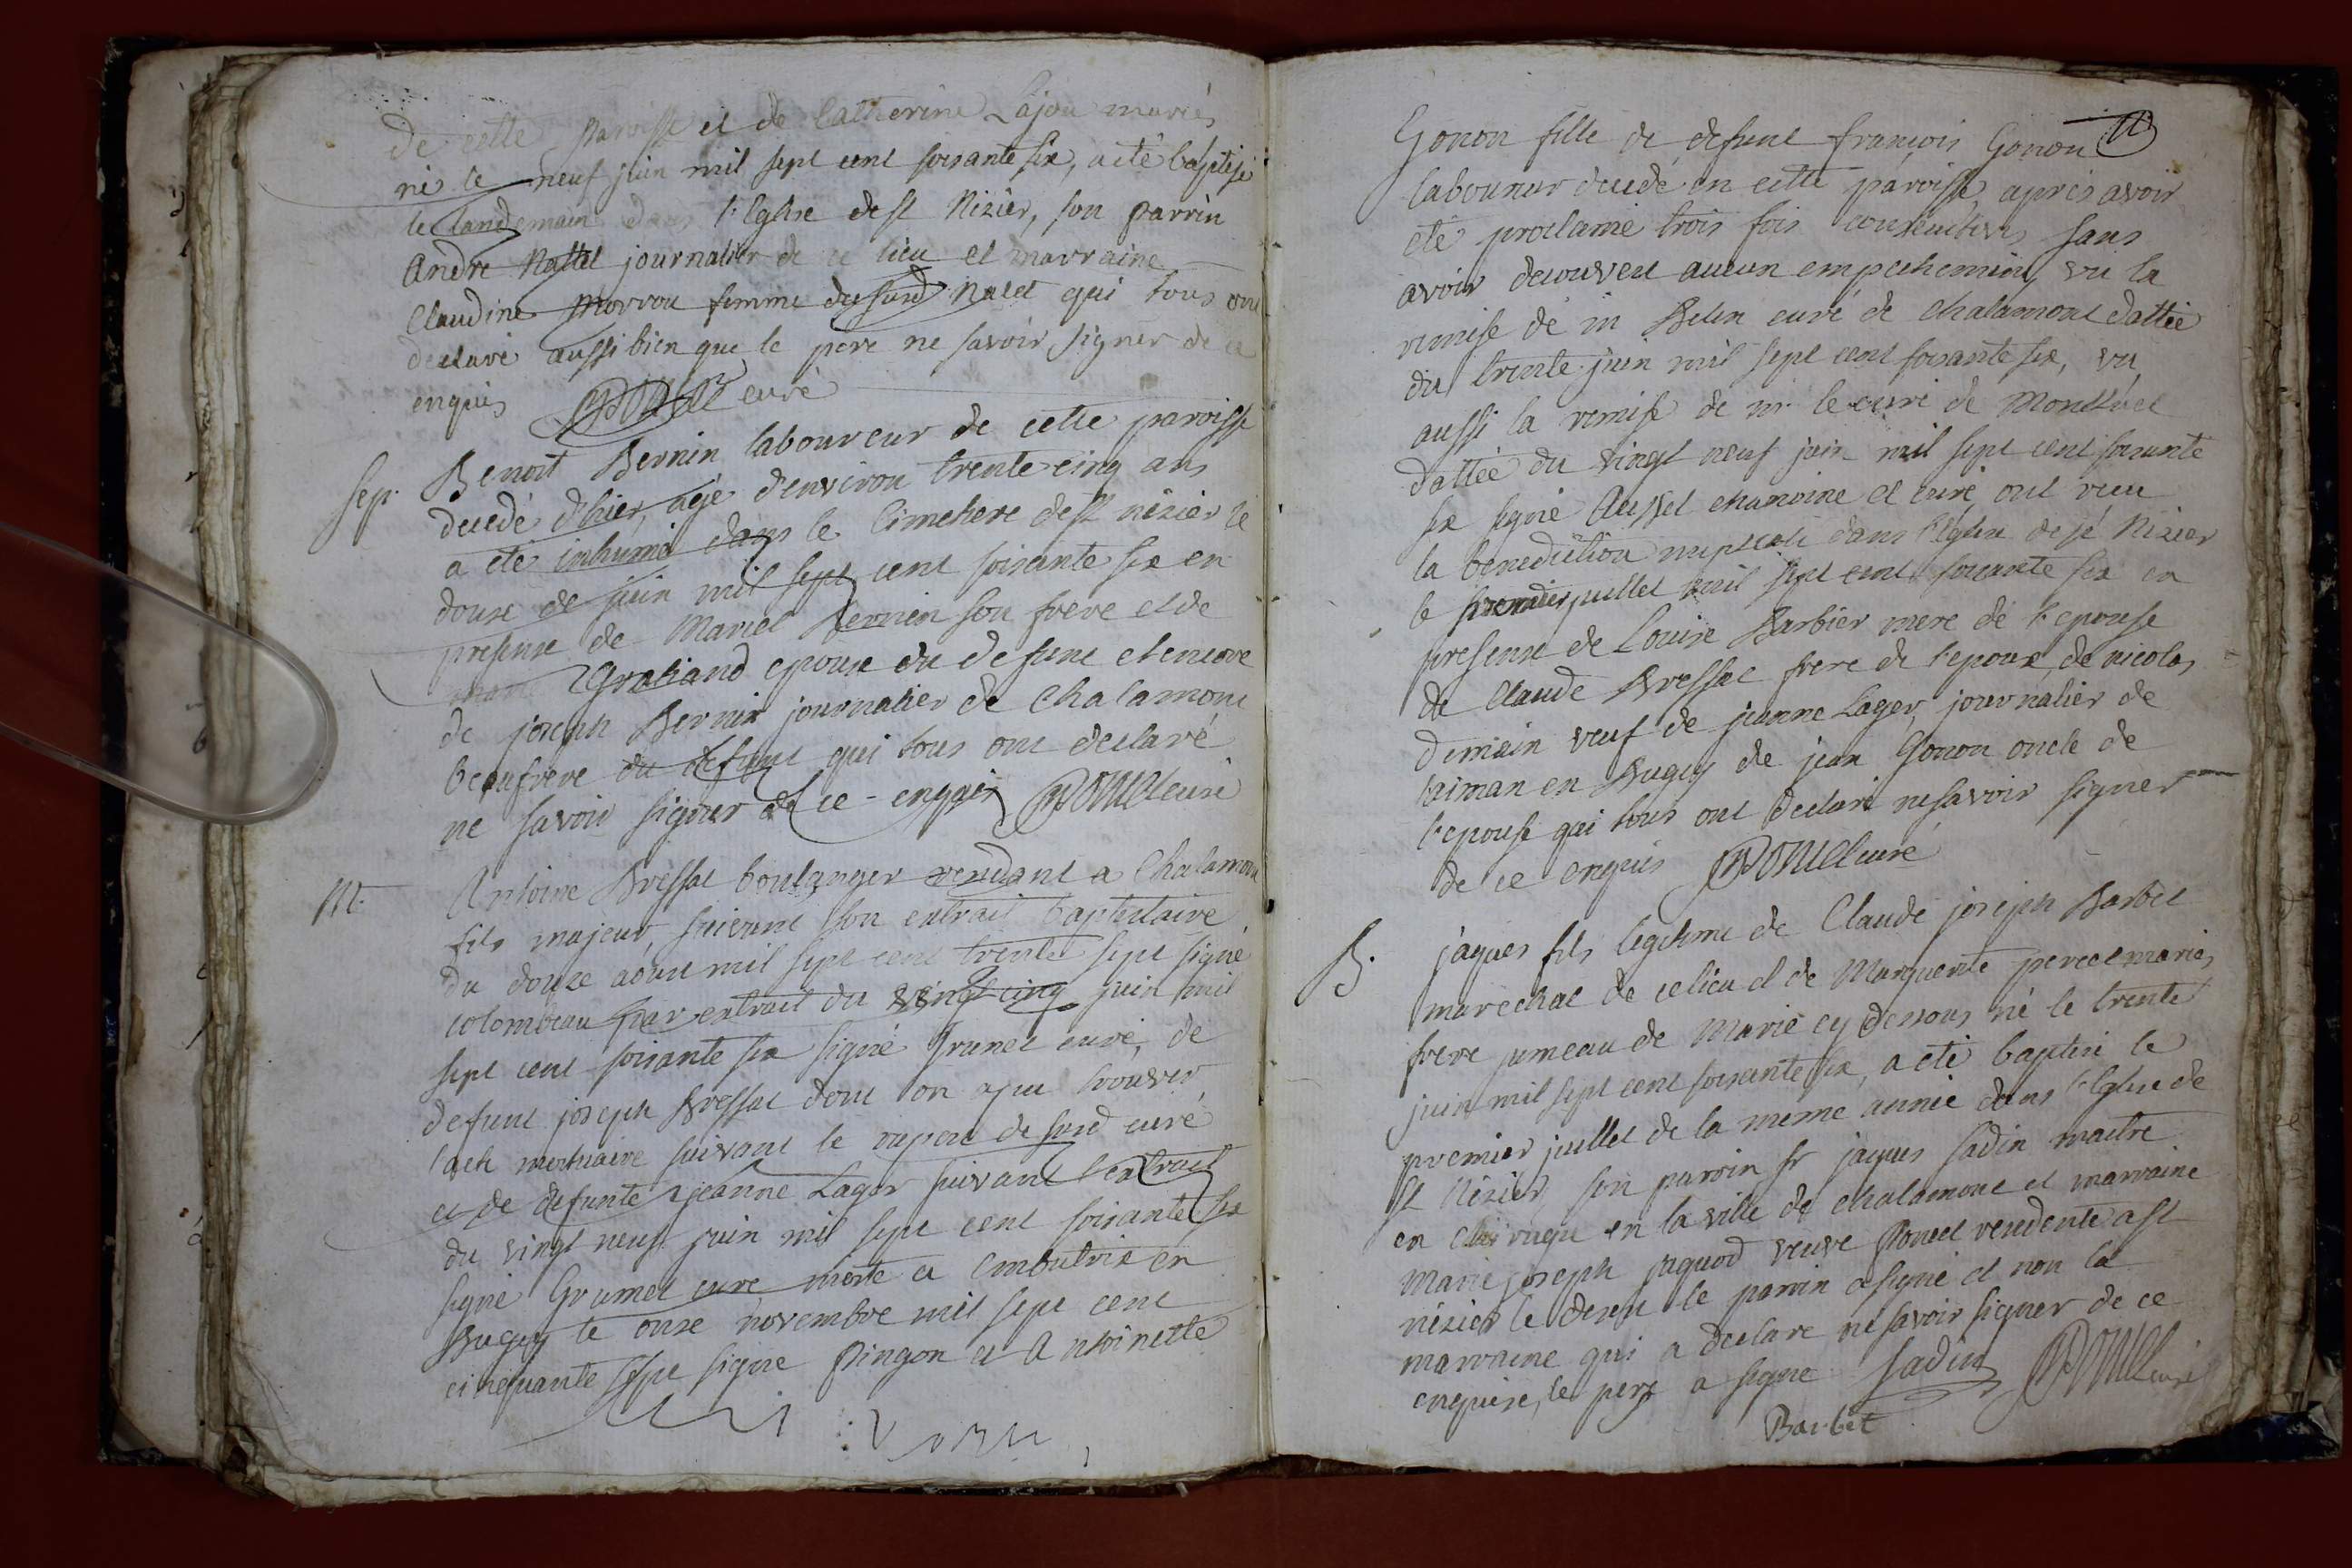 de cette paroisse et de Catherine Lajou mariés
né le neuf juin mil sept cent soixante six, a eté baptisé
le landemain dans l'Eglise de st Nizier, son parrin
andré Nallet journalier de ce lieu et marraine
Claudine morrou femme du susd Nalet qui tous ont
declaré aussi bien que le pere ne savoir signer de ce
enquis Poncet curé
Sep. Benoit Bernin laboureur de cette paroisse
decedé d'hier, agé d'environ trente cinq ans
a eté inhumé dans le Cimetiere de st nizier le
douze de juin mil sept cent soixante six en
presence de Mariel Bernin son frere et de
marie Gratiand epouse du defunt et encore
de joseph Bernin journalier de Chalamont
beaufrere du defunt qui tous ont declaré
ne savoir signer de ce enquis Poncet curé
M. Antoine Bressat boulanger rendant a Chalamont
fils majeur, suivant son extrait baptistaire
du douze aoust mil sept cent trente sept signé
colombeau par extrait du vingt cinq juin mil
sept cent soixante six signé Grumet curé, de
defunt joseph Bressat dont on a pu trouver
l'acte mortuaire suivant le raport du susd curé
et de defunte jeanne Lager suivant l'extrait
du vingt neuf juin mil sept cent soixante six
signé Grumet curé morte a Emboutrix en
Bugey le onze novembre mil sept cent
cinquante sept signé Pingon et Antoinette
Gonon fille de defunt françois Gonon
laboureur decedé en cette paroisse, apres avoir
eté proclamé trois fois consecutives sans
avoir decouvert aucun empechement, vu la
remise de m Belin curé de Chalamont dattée
du trente juin mil sept cent soixante six, vu
aussi la remise de mr le curé de Montluel
dattée du vingt neuf juin mil sept cent soixante
six signé chanoine et curé, ont recu
la benediction nuptiale dans l'Eglise de st Nizier
le premier juillet mil sept cent soixante six en
presence de Louise Barbier mere de l'epouse
de Claude Bressat frere de l'epoux, de nicolas
Demain veuf de jeanne Lager, journalier de
laiman en Bugey de jean Gonon oncle de
l'epouse qui tous ont declaré ne savoir signer
de ce enquis Poncet curé
B. jaques fils legitime de Claude joseph Barbet
marechal de ce lieu et de Marguerite percet mariés
frere jumeau de Marie cy dessous né le trente
juin mil sept cent soixante six, a eté baptisé le
premier juillet de la meme année dans l'Eglise de
st Nizier, son parrin sr jaques sadin maitre
en chirurgie en la ville de chalamont et marraine
Marie joseph jaquod veuve Poncet rendente a st
nizier le desert le parrin a signé et non la
marraine qui a declaré ne savoir signer de ce
enquise, le pere a signé Sadin Poncet curé
Barbet